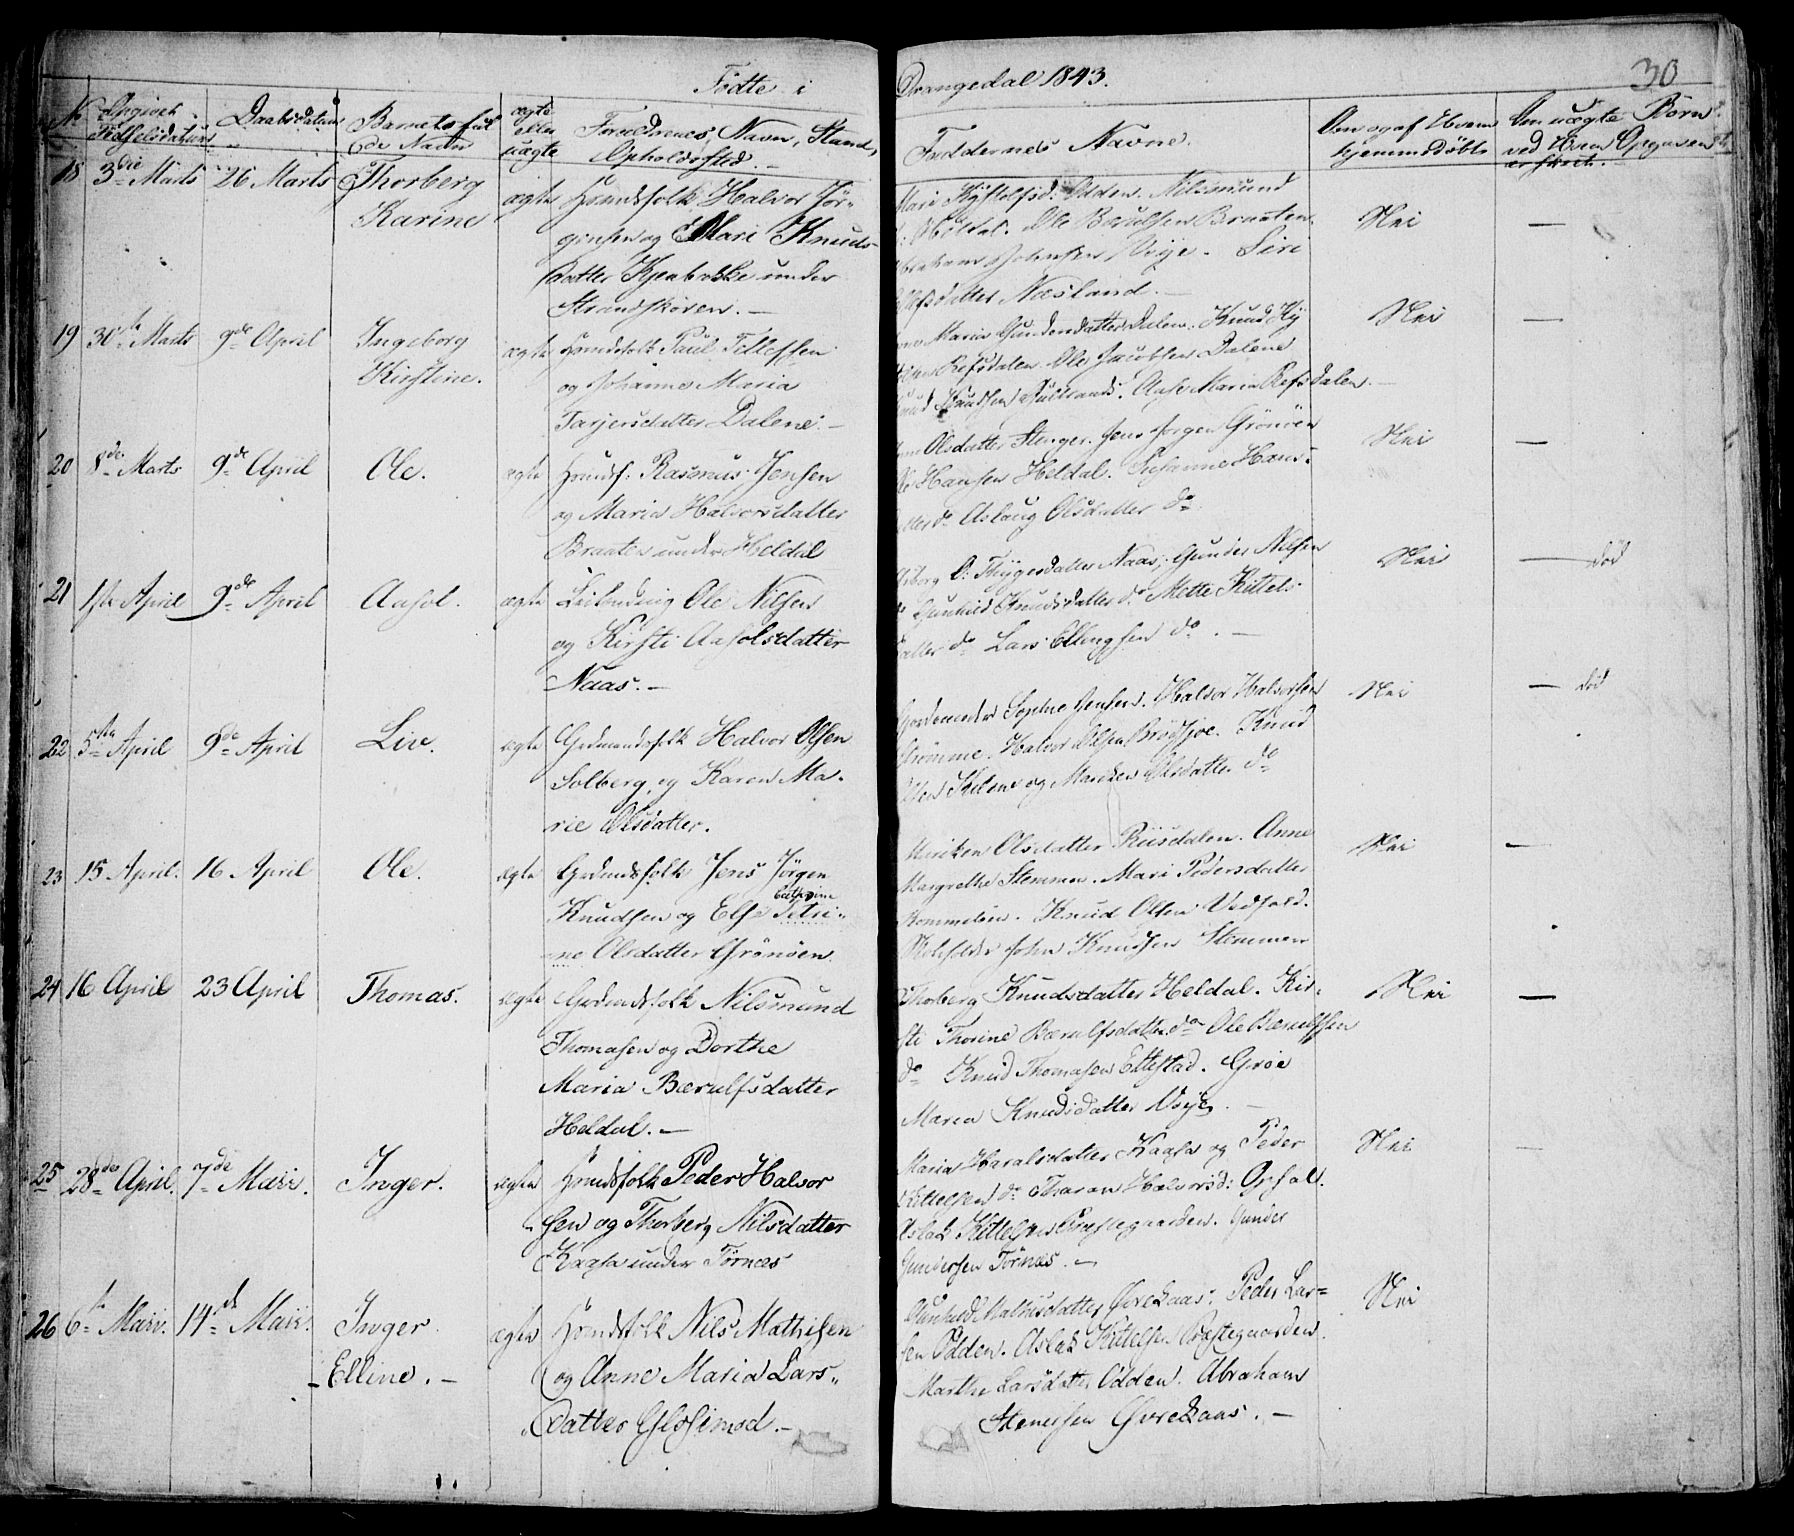 Fødte i Drangedal 1843.
30
No Opgivet Fødselsdatum
Daabsdatum
Barnets fulde Navn
ægte eller uægte
Forældrenes Navn, Stand, Opholdssted.
Faddernes Navne.
Om og af Hvem hjemmedøbt
Om uægte Børn
18 3die Marts 26 Marts Thorberg
Karine
ægte Huusfolk Halvor Jør-
gensen og Mari Knuds-
datter Kjenbakke under
Strandskoven. —
Odden. Nilsmund
Ole Bærulfsen Braaten.
Johnsen Siri
datter Næsland. —
Nei —
19 30te Marts 9de April Ingeborg
Kirstine.
ægte Huusfolk Paul Tellefsen
og Johanne Maria
Tarjersdatter Dalene. —
Maria Gundersdatter Dalen. Knud
Refsdalen. Ole Jacobsen Dalene
Knudsen Aase Maria Refsdalen. —
Nei —
20 8de Marts 9de April Ole.
ægte Huusf: Rasmus Jensen
og Maria Halvorsdatter
Braaten under Heldal
Olsdatter Stenger. Jens Jørgen Grønøen
Hansen Heldal. Susanne Hans-
datter do Aslaug Olsdatter do
Nei —
21 1ste April 9de April Aasol.
ægte Leilending Ole Nilsen
og Kirsti Aasolsdatter
Naas. —
Thygesdatter Naas, Gunder Nilsen
do Gunhild Knudsdatter do Mette Kittels-
datter do Lars Ellingsen do. —
Nei — død
22 5te April 9de April Liv.
ægte Gudmandsfolk Halvor Olsen
Solberg, og Karen Ma-
rie Olsdatter.
Gjordemoder Sophie Jensen. Halvor Halvorsen
Strømme. Halvor Olsen Brødsjøe. Knud
og Mariken Olsdatter do
Nei — død
23 15 April. 16 April Ole.
ægte Gudmdsfolk Jens Jørgen
Cathrine
Knudsen og Else Petri-
ne Olsdatter Grønøen
Mariken Olsdatter Riisdalen. Anne
Margrethe Stemmen. Mari Pedersdatter
Knud Olsen Vedfald.
Skoleholder John Knudsen Stemmen
Nei —
24 16 April 23 April Thomas.
ægte Gudmdsfolk Nilsmund
Thomasen og Dorthe
Maria Bærulfsdatter
Heldal. —
Thorberg Knudsdatter Heldal. Kir-
sti Thorine Bærulfsdatter do Ole Bærulfsen
do Knud Thomasen Ettestad. Groe
Maria Knudsdatter Voje. —
Nei —
25 28de April. 7de Maii. Inger.
ægte Huusfolk Peder Halvor
sen og Thorberg Nilsdatter
Kaasa under Tørnæs
Maria Haralsdatter Kaasa og Peder
Kittelsen do Tharan Halvorsd: Opsal.
Aslak Kittelsen Præstegaarden. Gunder
Gundersen Tørnæs. —
Nei —
26 6te Maii. 14de Maii. Inger
Elline. —
ægte Huusfolk Nils Mathisen
og Anne Maria Lars-
datter Gloseimod. —
Gunhild Mathisdatter Øvrekaas. Peder Lar-
sen Odden. Aslak Kittelsen Præstegaarden.
Marthe Larsdatter Odden. Abraham
Stenersen Øvrekaas. —
Nei